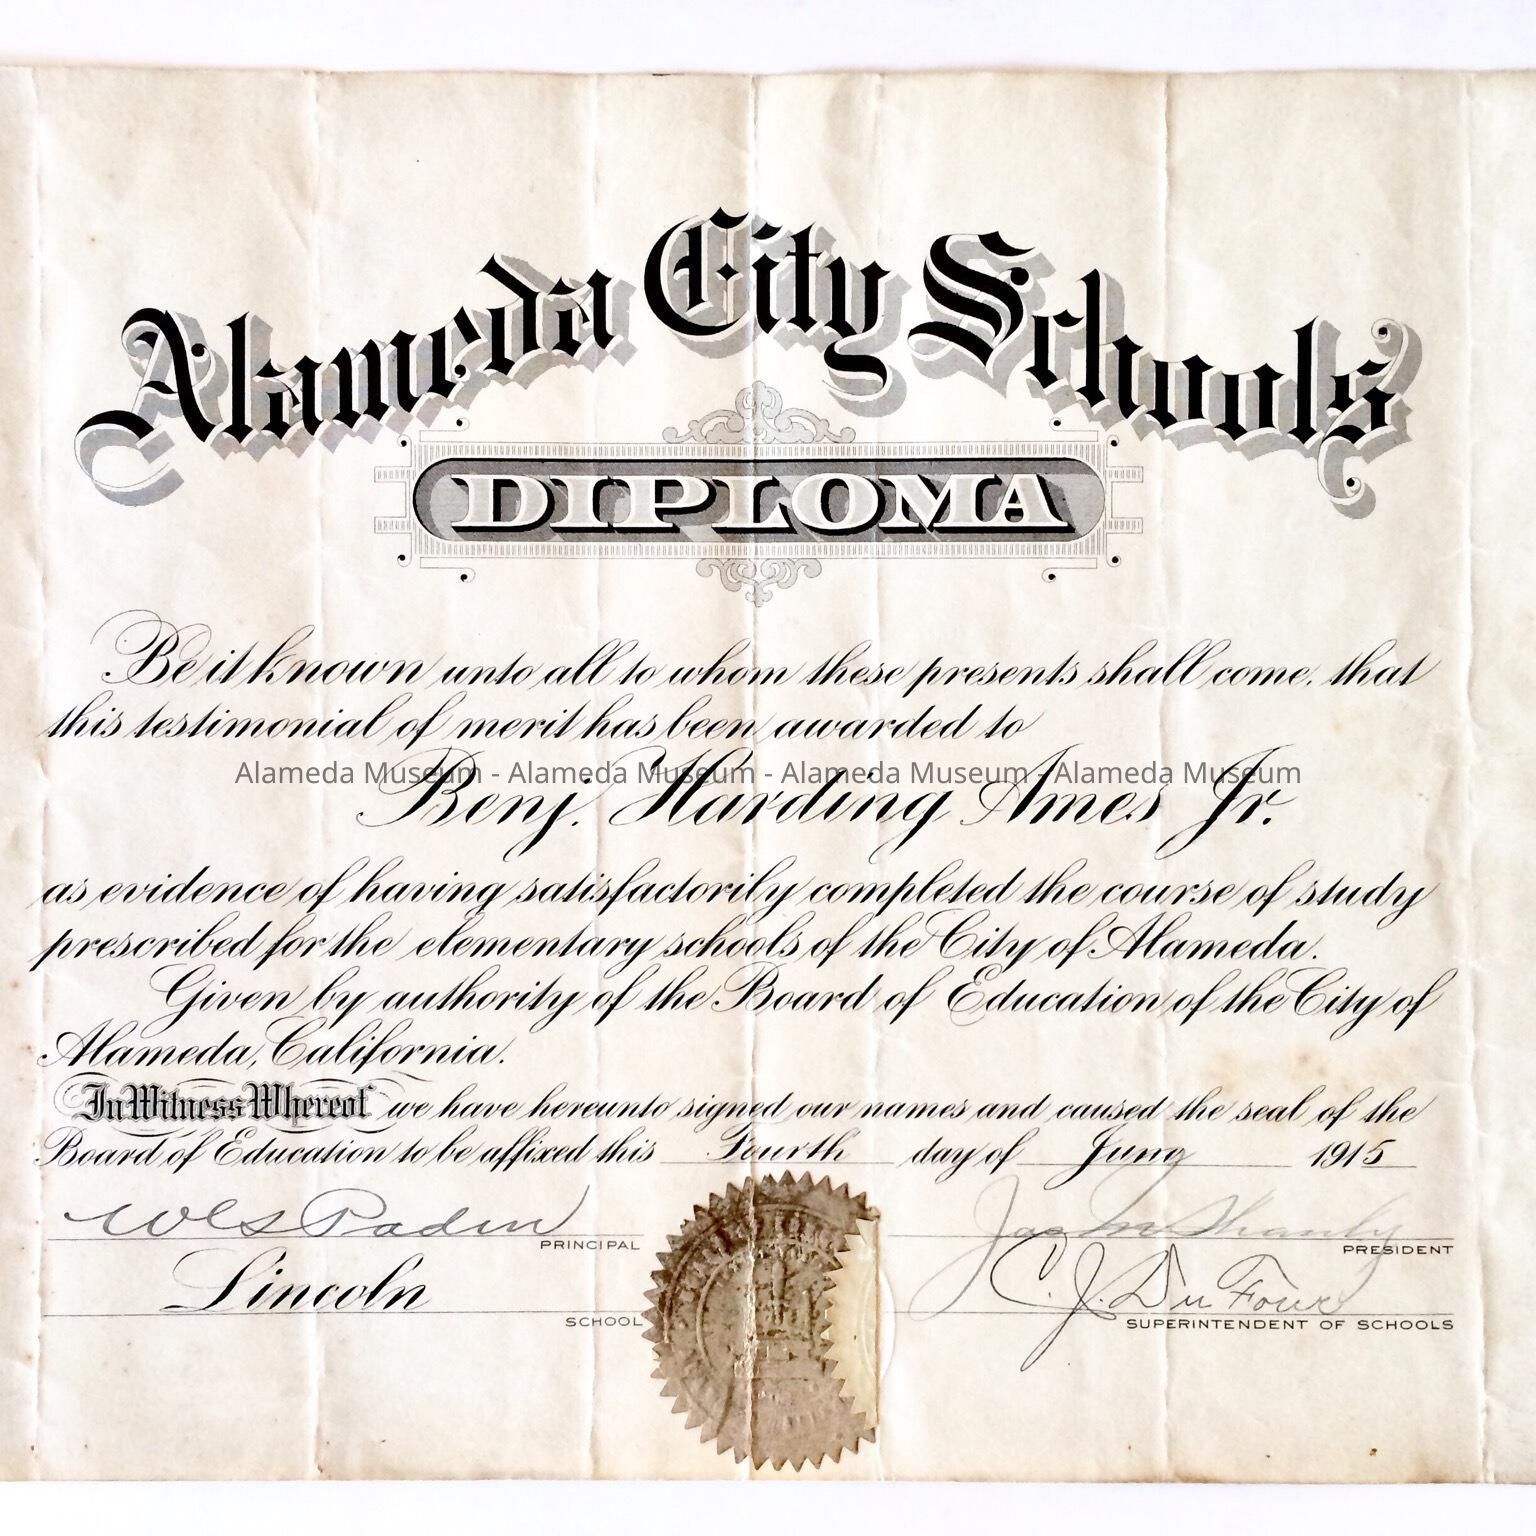 Alameda City Schools
DIPLOMA
Be it known unto all to whom these presents shall come, that
this testimonial of merit has been awarded to
Alameda Museum - Alameda Museum - Alameda Museum - Alameda Museum
Benj. Harding Ames Jr.
as evidence of having satisfactorily completed the course of study
prescribed for the elementary schools of the City of Alameda.
Given by authority of the Board of Education of the City of
Alameda, California.
In Witness Whereof we have hereunto signed our names and caused the seal of the
Board of Education to be affixed this Fourth day of June 1915
PRINCIPAL
PRESIDENT
Lincoln
C. J. Du Four
SCHOOL
SUPERINTENDENT OF SCHOOLS